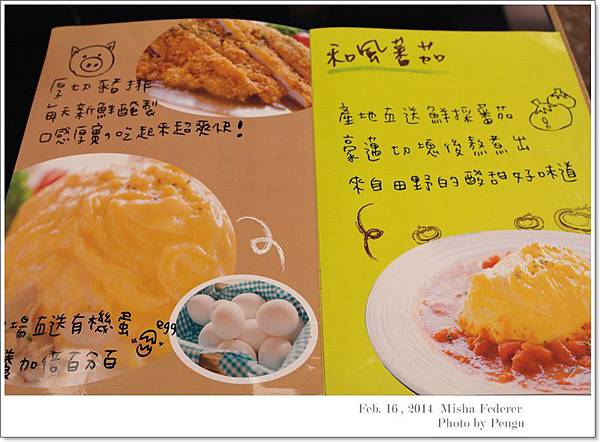 厚切豬排
每天新鮮醃製
口感厚實,吃起來超爽快!
場直送有機蛋
egg
加倍百分百
和風蕃茄
產地直送鮮採蕃茄
豪邁切塊後熬煮出
來自田野的酸甜好味道
Feb. 16 , 2014 Misha Federer
Photo by Pengu